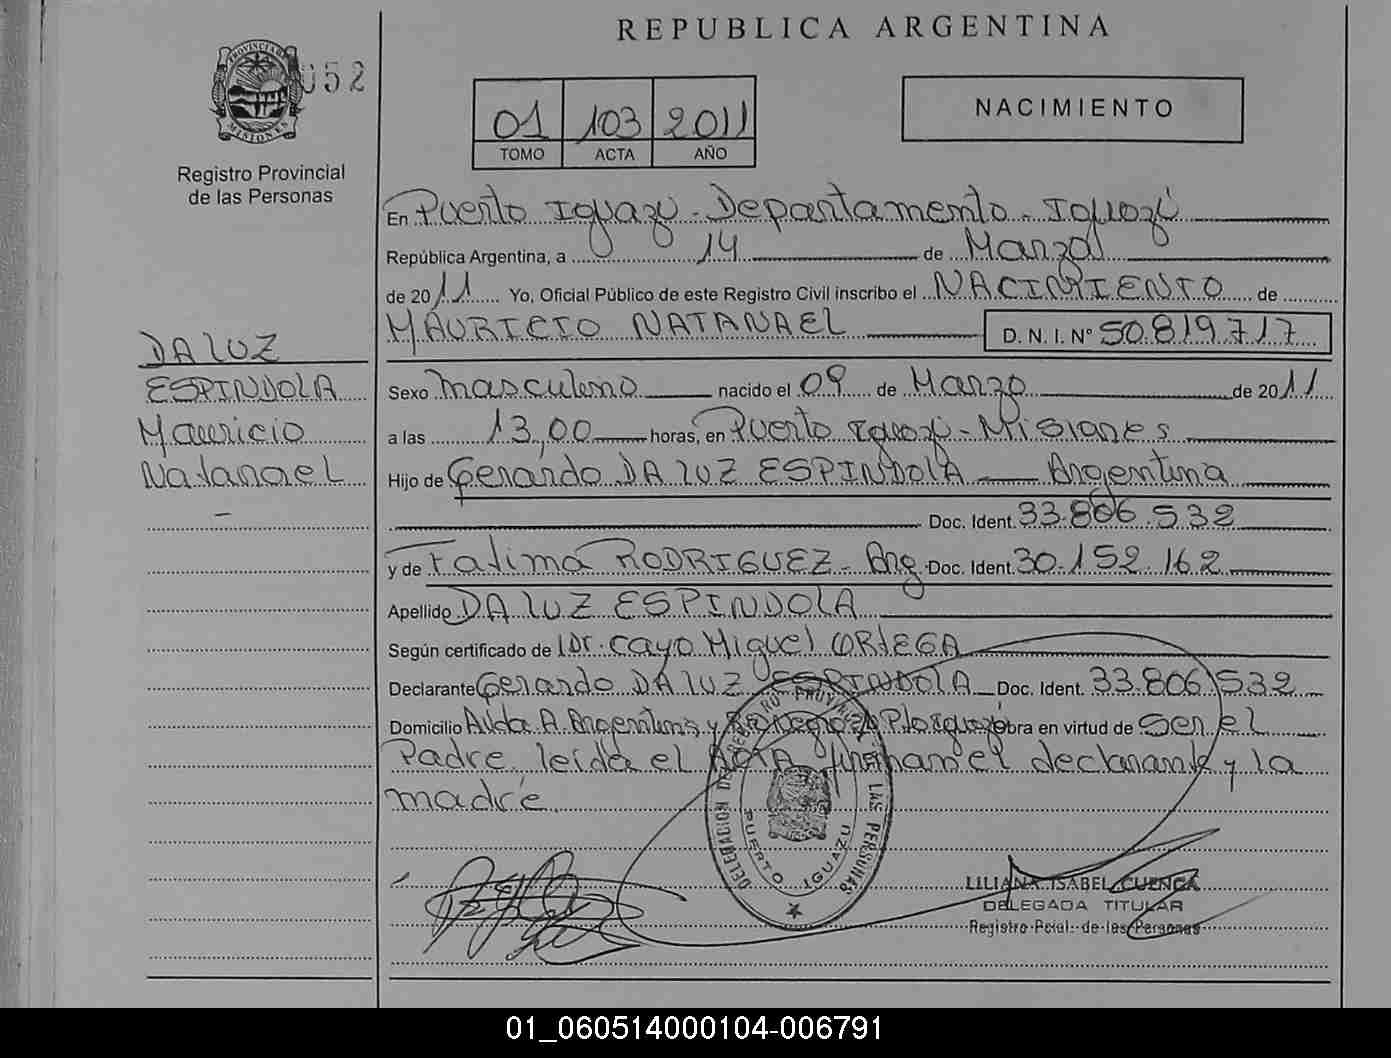 REPUBLICA ARGENTINA
PROVINCIA DE
MISIONES
052
Registro Provincial
de las Personas
01 103 2011
TOMO ACTA AÑO
NACIMIENTO
En Puerto Iguazú - Departamento - Iguazú
República Argentina, a 14 de Marzo
de 2011 Yo, Oficial Público de este Registro Civil inscribo el NACIMIENTO de
MAURICIO NATANAEL D. N. I. Nº 50.819.717
DA LUZ
ESPINDOLA
Mauricio
Natanael
-
Sexo masculino nacido el 09 de Marzo de 2011
a las 13,00 horas, en Puerto Iguazú - Misiones
Hijo de Gerardo DA LUZ ESPINDOLA — Argentina
Doc. Ident. 33.806.532
y de Fatima RODRIGUEZ - Arg. Doc. Ident. 30.152.162
Apellido DA LUZ ESPINDOLA
Según certificado de Dr. Cayo Miguel ORTEGA
Declarante Gerardo DA LUZ ESPINDOLA Doc. Ident. 33.806.532
Domicilio Avda A. Argentina y obra en virtud de Ser el
Padre leída el ACTA firman el declarante y la
madre
DELEGACION DEL REGISTRO PROVINCIAL DE LAS PERSONAS
PUERTO IGUAZU
LILIANA ISABEL CUENCA
DELEGADA TITULAR
Registro Pcial. de las Personas
01_060514000104-006791